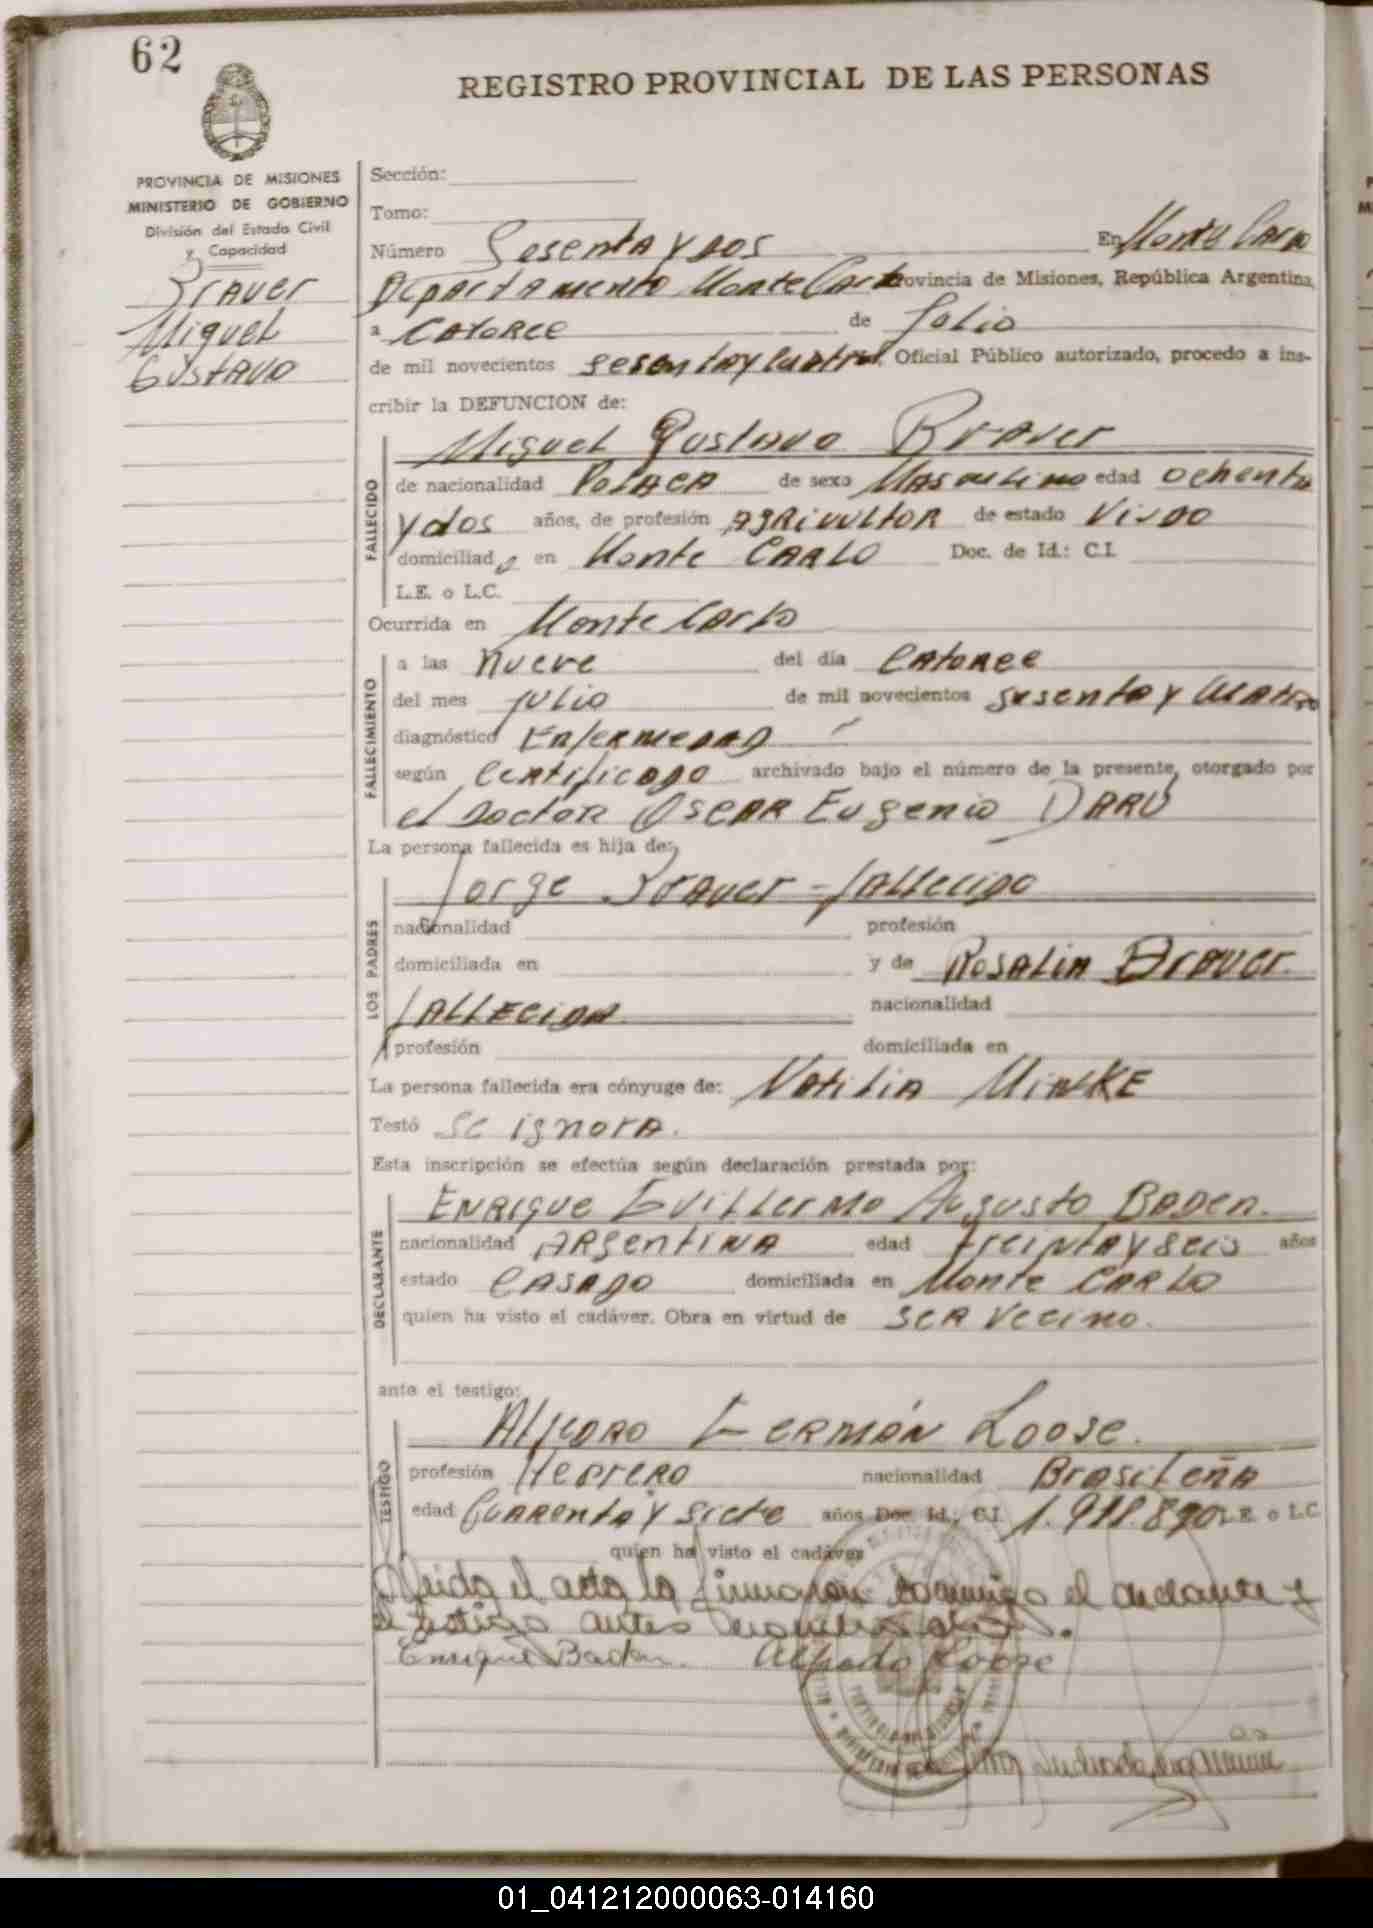 62
REGISTRO PROVINCIAL DE LAS PERSONAS
PROVINCIA DE MISIONES
MINISTERIO DE GOBIERNO
División del Estado Civil
y Capacidad
Brauer
Miguel
Gustavo
Sección:
Tomo:
Número Sesenta y dos En Monte Carlo
Departamento Monte Carlo Provincia de Misiones, República Argentina,
a Catorce de Julio
de mil novecientos sesenta y cuatro Oficial Público autorizado, procedo a ins-
cribir la DEFUNCION de:
FALLECIDO
Miguel Gustavo Brauer
de nacionalidad Polaca de sexo Masculino edad ochenta
y dos años, de profesión Agricultor de estado Viudo
domiciliado en Monte Carlo Doc. de Id.: C.I.
L.E. o L.C.
Ocurrida en Monte Carlo
FALLECIMIENTO
a las nueve del día Catorce
del mes julio de mil novecientos sesenta y cuatro
diagnóstico Enfermedad
según Certificado archivado bajo el número de la presente, otorgado por
el Doctor Oscar Eugenio DARÚ
La persona fallecida es hija de:
LOS PADRES
Jorge Brauer - fallecido
nacionalidad profesión
domiciliada en y de Rosalia Brauer.
fallecida nacionalidad
profesión domiciliada en
La persona fallecida era cónyuge de: Natilia MINKE
Testó se ignora.
Esta inscripción se efectúa según declaración prestada por:
DECLARANTE
Enrique Guillermo Augusto Baden.
nacionalidad Argentina edad treinta y seis años
estado Casado domiciliada en Monte Carlo
quien ha visto el cadáver. Obra en virtud de ser vecino.
ante el testigo:
TESTIGO
Alfredo Germán Loose.
profesión Herrero nacionalidad Brasileña
edad Cuarenta y siete años Doc. Id.: C.I. L.E. o L.C.
quien ha visto el cadáver
Leída el acta la firmaron conmigo el declarante y
el testigo antes
Enrique Baden. Alfredo Loose
01_041212000063-014160